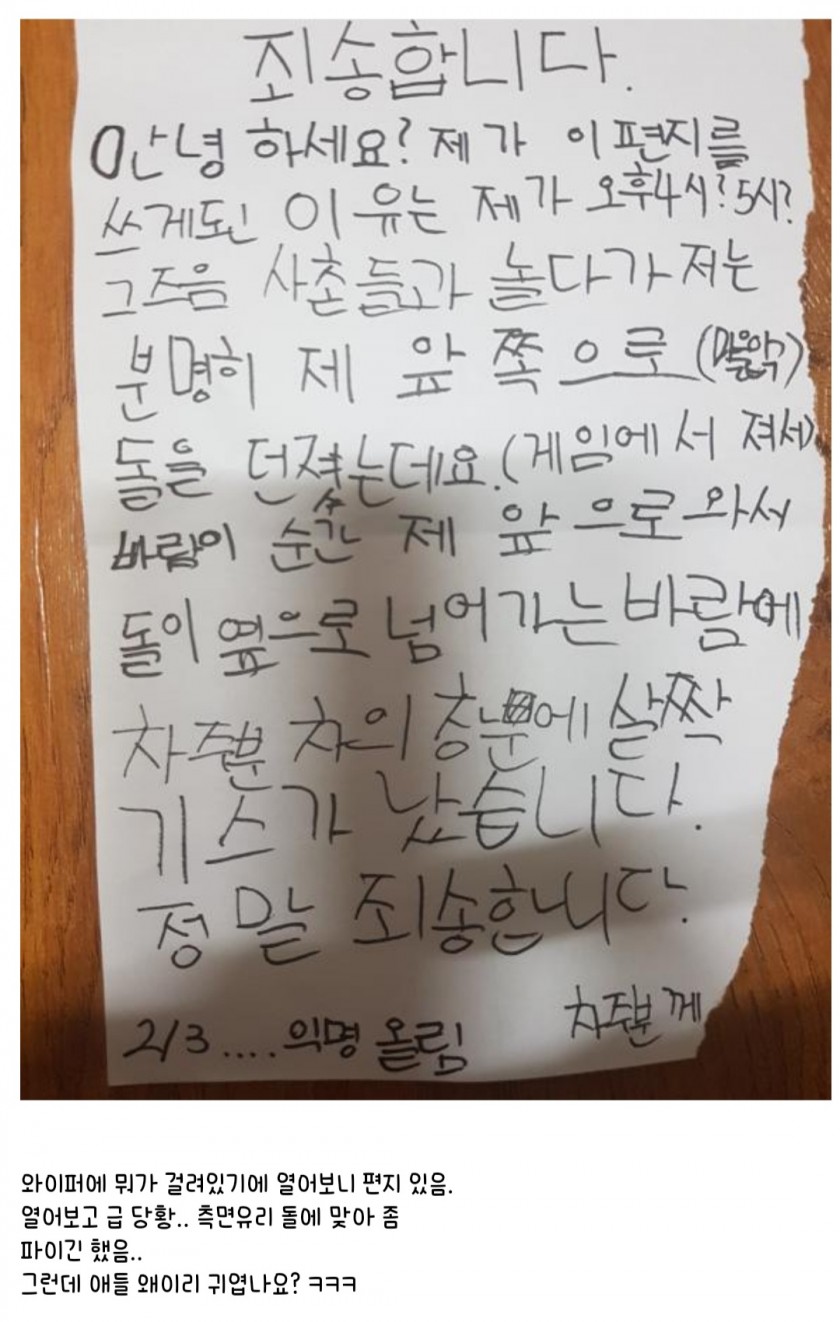 죄송합니다.
안녕 하세요? 제가 이편지를
쓰게된 이유는 제가 오후4시? 5시?
그즈음 사촌들과 놀다가 저는
분명히 제 앞 쪽으로
돌을 던졌는데요.(게임에서 져서)
바람이 순간 제 앞으로와서
돌이 옆으로 넘어가는 바람에
차주분 차의 살짝
기스가 났습니다.
정말 죄송합니다.
차주분 께
2/3 .... 익명 올림
와이퍼에 뭐가 걸려있기에 열어보니 편지 있음.
열어보고 급 당황.. 측면유리 돌에 맞아 좀
파이긴 했음..
그런데 애들 왜이리 귀엽나요? ㅋㅋㅋ